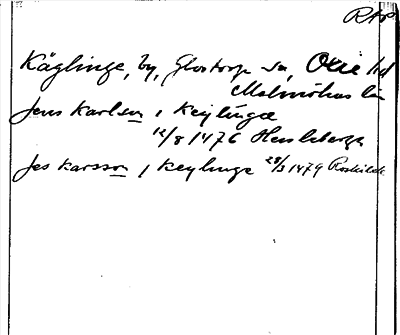 RAP
Käglinge, by, Glostorp sn, Oxie hd
Malmöhus län
Jens Karlsen i Keylinge
12/8 1476
Jes Karsson i Keylinge 28/3 1479 Roskilde